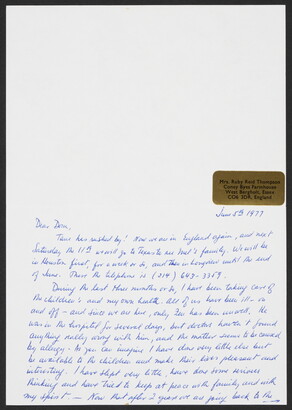 Mrs. Ruby Reid Thompson
Coney Byes Farmhouse
West Bergholt, Essex
CO6 3DR, England
June 5th 1977
Dear Dom,
Time has rushed by! Now we are in England again, and next
Saturday the 11th we will go to Texas to see Reid's family. We will be
in Houston first, for a week or so, and then in Longview until the end
of June. There the telephone is (214) 643-3359.
During the last three months or so, I have been taking care of
the children's and my own health. All of us have been ill – on
and off – and since we are here, only Zoe has been unwell. He
was in the hospital for several days, but doctors haven't found
anything really wrong with him, and the matter seems to be caused
by allergy. As you can imagine I have done very little else but
be available to the children and make their lives pleasant and
interesting. I have slept very little, have done some serious
thinking and have tried to keep at peace with family and with
my spirit — Now that after 2 years we are going back to the